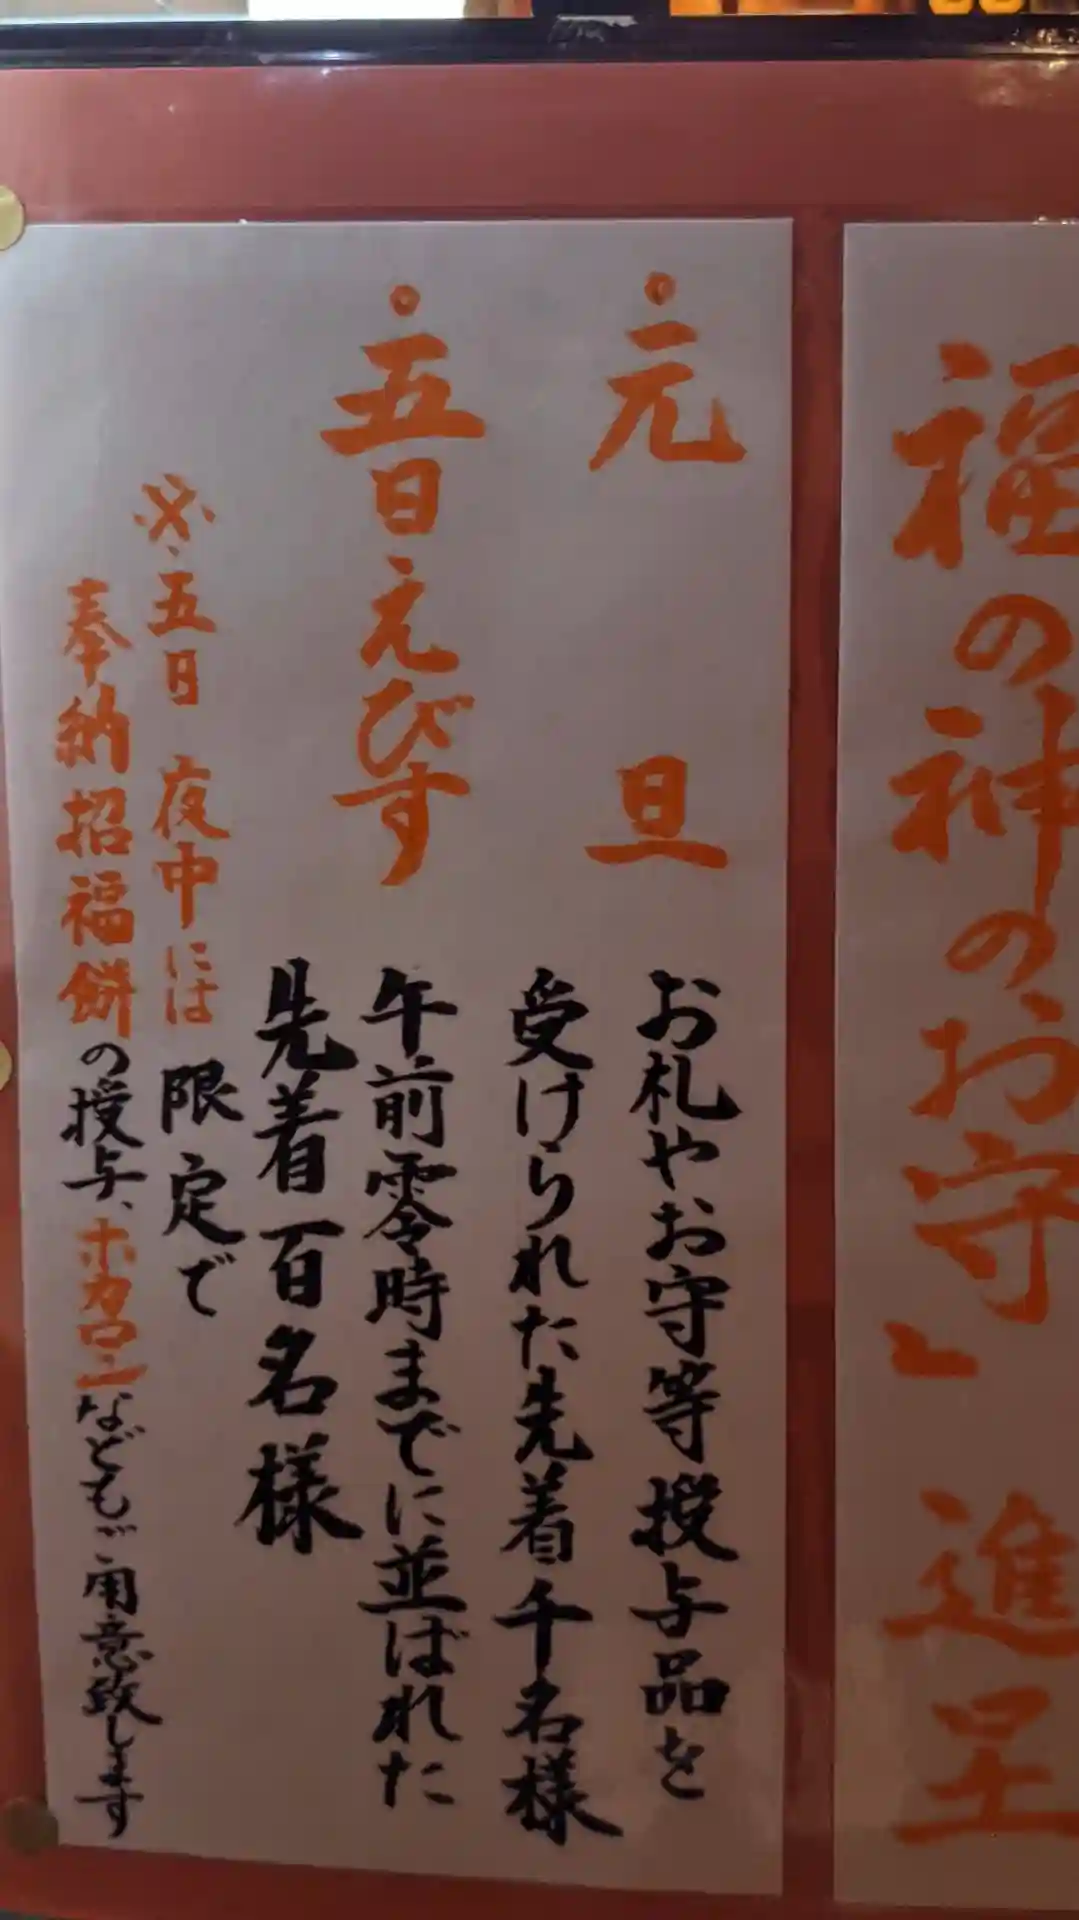 福の神のお守」 進呈
。元 旦
お札やお守等授与品を
受けられた先着千名様
。五日えびす
午前零時までに並ばれた
先着百名様
※五日 夜中には 限定で
奉納招福餅の授与、ホカロンなどもご用意致します